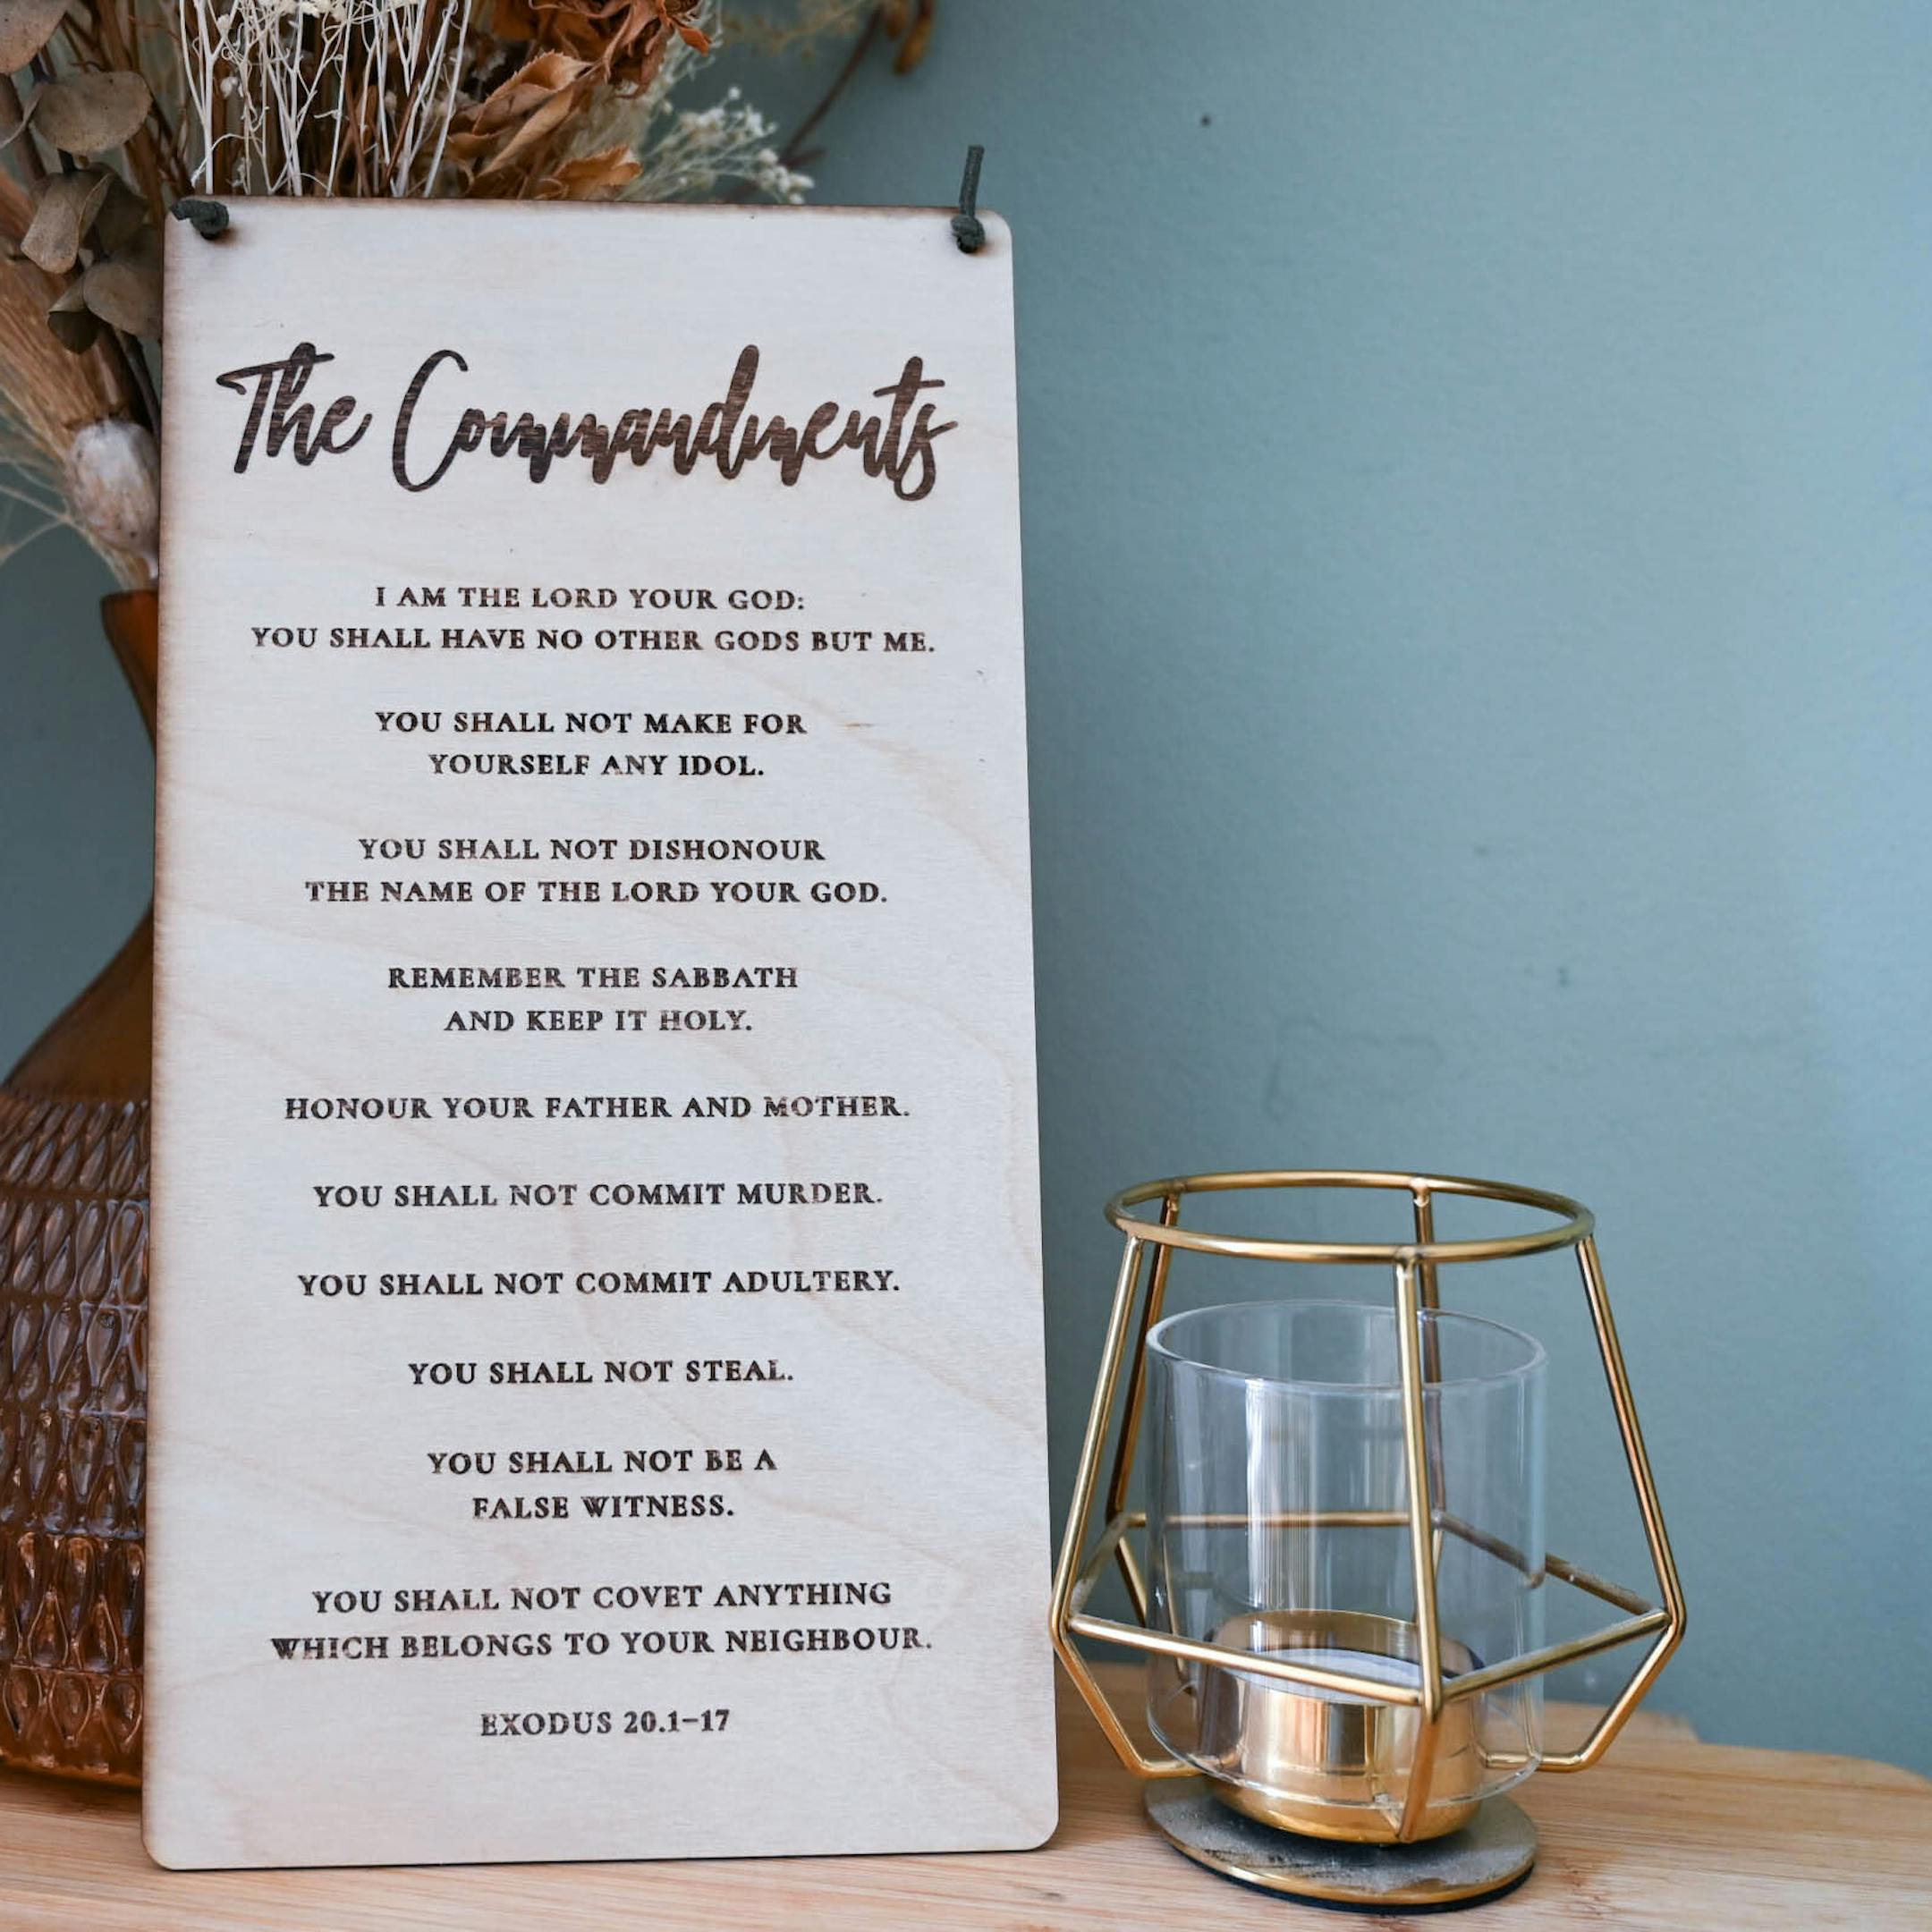 The Commandments
I AM THE LORD YOUR GOD:
YOU SHALL HAVE NO OTHER GODS BUT ME.
YOU SHALL NOT MAKE FOR
YOURSELF ANY IDOL.
YOU SHALL NOT DISHONOUR
THE NAME OF THE LORD YOUR GOD.
REMEMBER THE SABBATH
AND KEEP IT HOLY.
HONOUR YOUR FATHER AND MOTHER.
YOU SHALL NOT COMMIT MURDER.
YOU SHALL NOT COMMIT ADULTERY.
YOU SHALL NOT STEAL.
YOU SHALL NOT BE A
FALSE WITNESS.
YOU SHALL NOT COVET ANYTHING
WHICH BELONGS TO YOUR NEIGHBOUR.
EXODUS 20.1-17